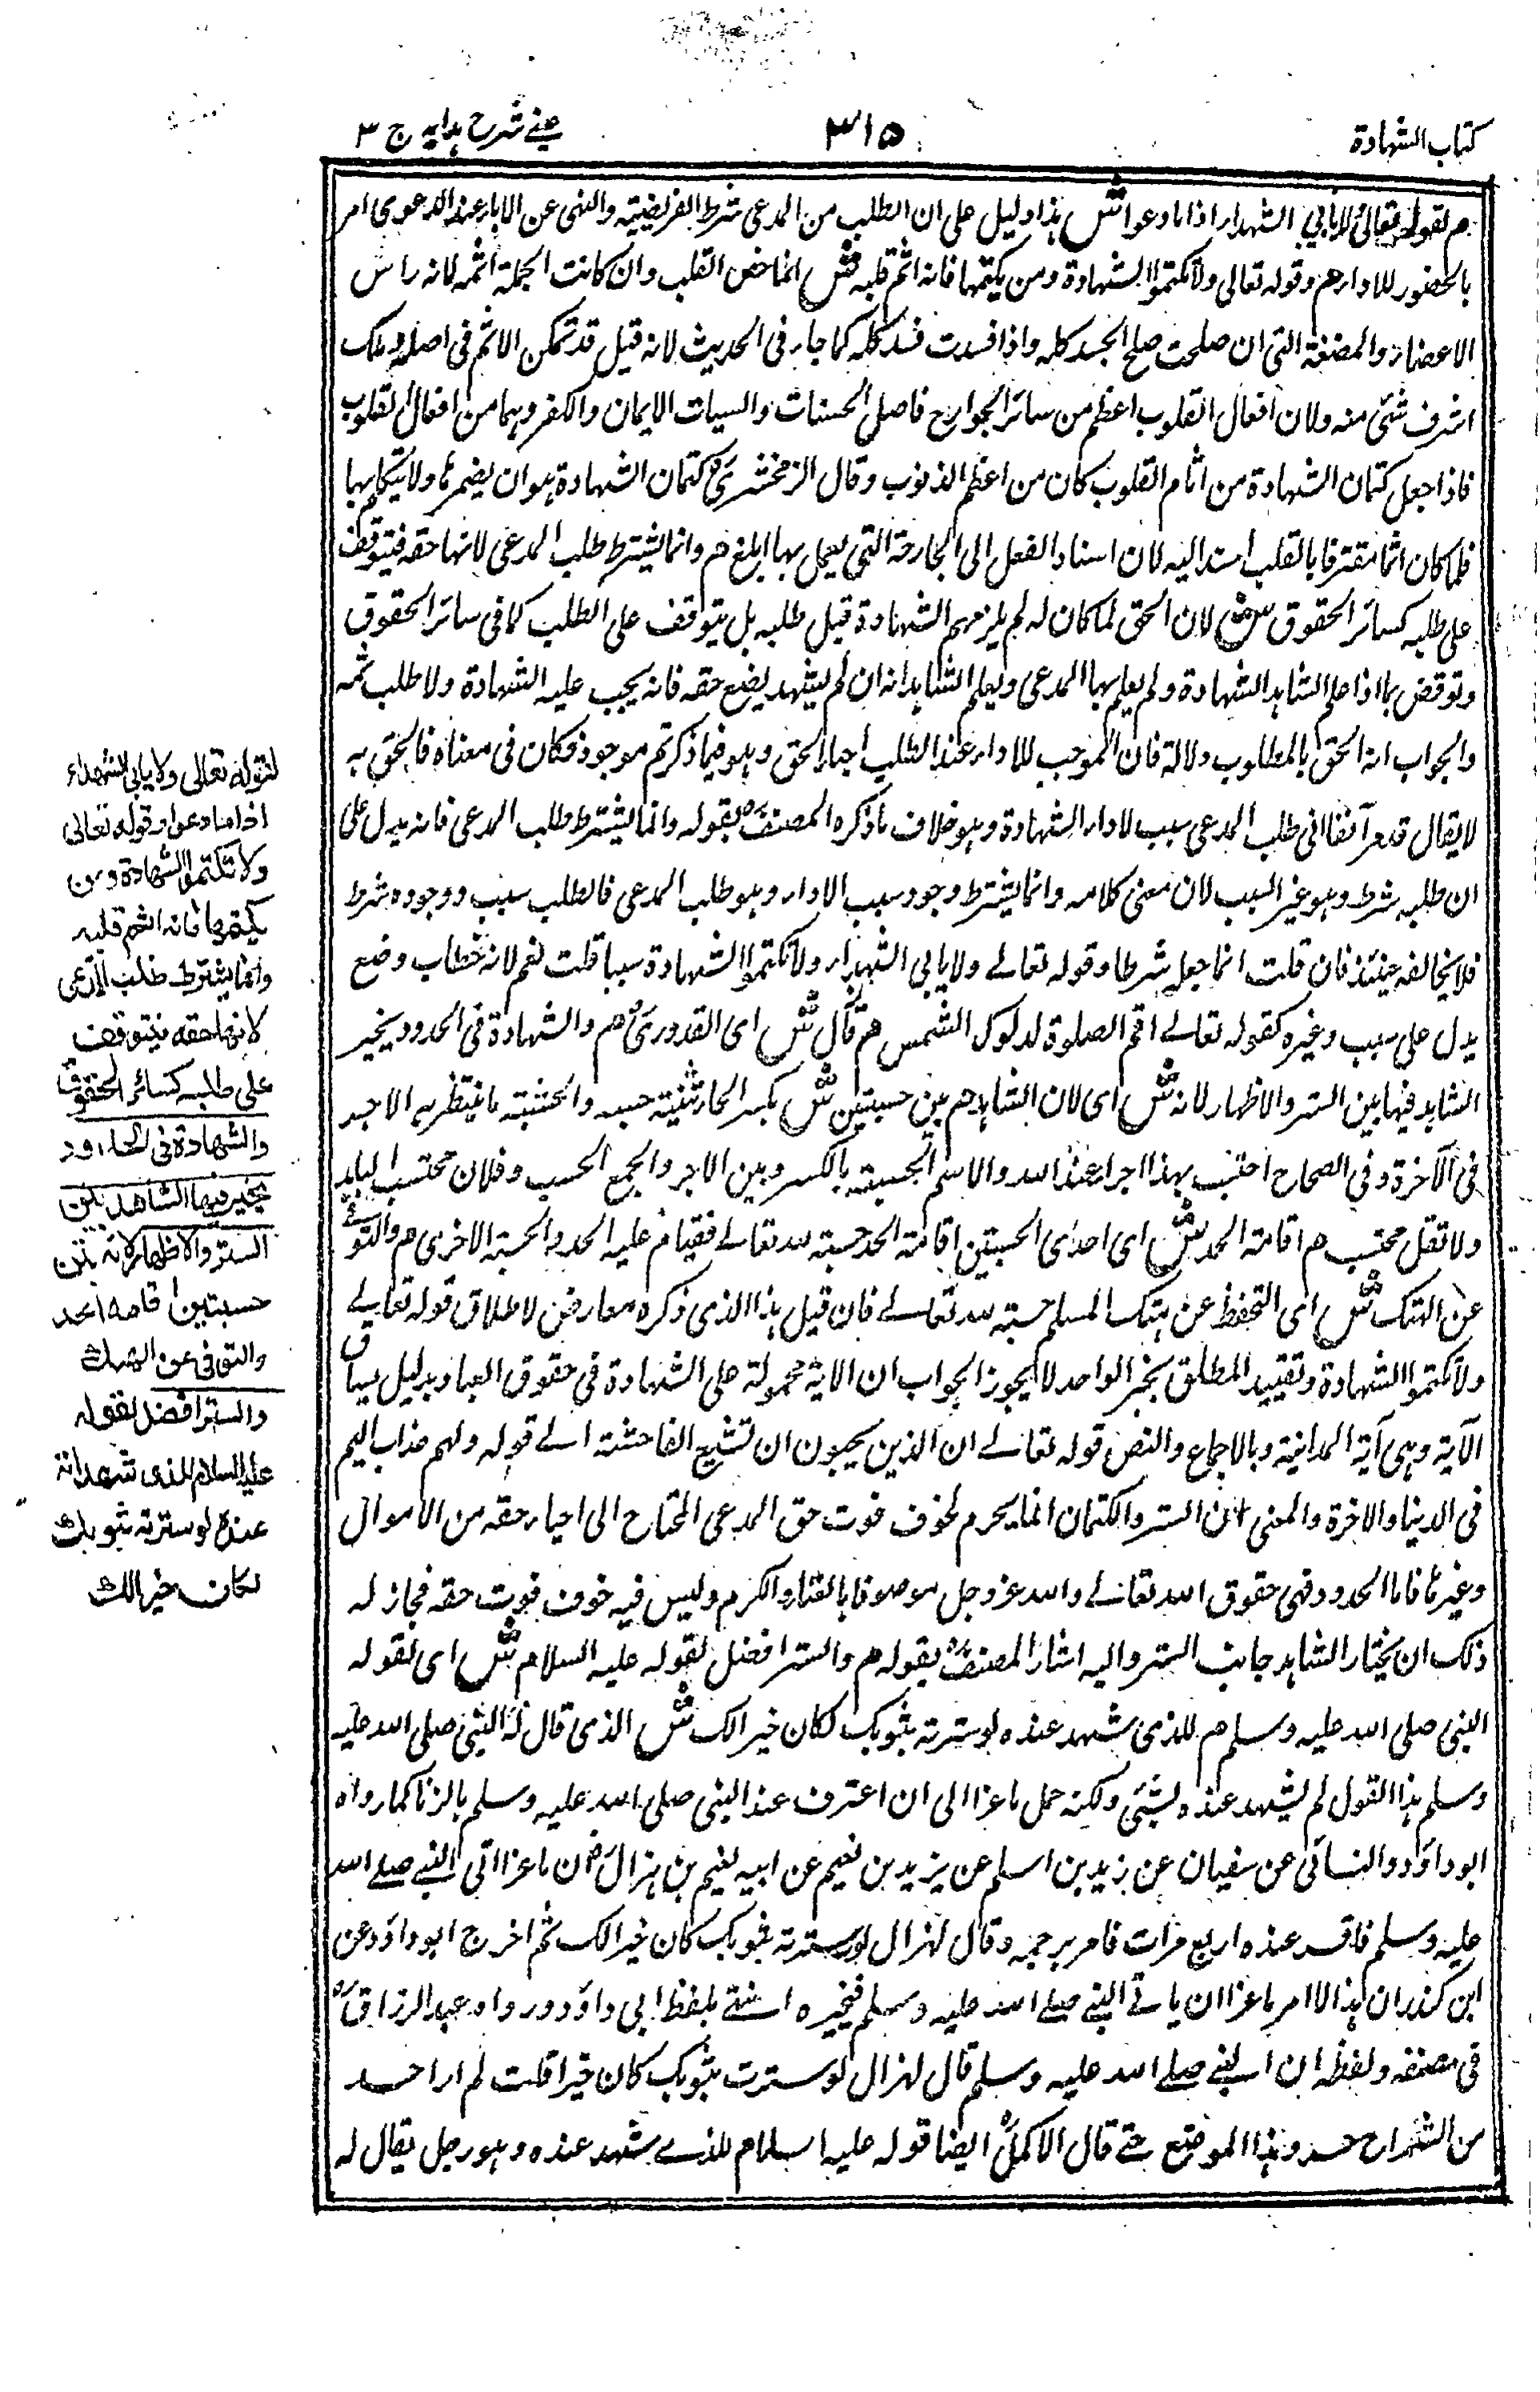 كتاب الشهادة
٣١٥
عينى شرح هدايه ج ٣
م لقوله تعالى ولا يابي الشهداء اذا ما دعوا ش هذا دليل على ان الطلب من المدعى شرط الفريضيته والنهى عن الاباء عند الدعوى امر
بالحضور للاداء م وقوله تعالى ولا تكتموا الشهادة ومن يكتمها فانه اثم قلبه ش انما خص القلب وان كانت الجملة اثمه لانه راس
الاعضاء والمضغة التى ان صلحت صلح الجسد كله واذا فسدت فسد كله كما جاء فى الحديث لانه قيل قد تمكن الاثم فى اصله وملك
اشرف شئ منه ولان افعال القلوب اعظم من سائر الجوارح فاصل الحسنات والسيات الايمان والكفر وهما من افعال القلوب
فاذا جعل كتمان الشهادة من اثام القلوب كان من اعظم الذنوب وقال الزمخشرى كتمان الشهادة هو ان يضمرها ولا يتكلم بها
فلما كان اثما مقترفا بالقلب اسند اليه لان اسناد الفعل الى الجارحة التى يعمل بها ابلغ م وانما يشترط طلب المدعى لانها حقه فيتوقف
على طلبه كسائر الحقوق ش لان الحق لما كان له لم يلزمهم الشهادة قبل طلبه بل يتوقف على الطلب كما فى سائر الحقوق
ونوقض بما اذا علم الشاهد الشهادة ولم يعلم بها المدعى ويعلم الشاهد انه ان لم يشهد يضيع حقه فانه يجب عليه الشهادة ولا طلب ثمه
والجواب انه الحق بالمطلوب دلالة فان الموجب للاداء عند الطلب احياء الحق وهو فيما ذكرتم موجود فكان فى معناه فالحق به
لا يقال قد مر آنفا ان طلب المدعى سبب لاداء الشهادة وهو خلاف ما ذكره المصنف بقوله وانما يشترط طلب المدعى فانه يدل على
ان طلبه شرط وهو غير السبب لان معنى كلامه وانما يشترط وجود سبب الاداء وهو طلب المدعى فالطلب سبب ووجوده شرط
فلا يخالفه حينئذ فان قلت انما جعل شرطا وقوله تعالے ولا يابى الشهداء ولا تكتموا الشهادة سببا قلت نعم لانه خطاب وضع
يدل على سبب وغيره كقوله تعالے اقم الصلوة لدلوك الشمس م قال ش اى القدورى م والشهادة فى الحدود يخير
الشاهد فيها بين الستر والاظهار لانه ش اى لان الشاهد م بين حسبتين ش بكسر الحاء تثنية حسبه والحسبته ما ينتظر به الاجر
فى الآخرة وفى الصحاح احتسب بهذا اجرا عند الله والاسم الحسبته بالكسر وبين الاجر والجمع الحسب وفلان محتسب البلد
ولا تقل محتسب م اقامته الحد ش اى احدى الحسبتين اقامته الحد حسبته لله تعالے فقيام عليه الحد والحسبته الاخرى م والتوقى
عن الهتك ش اى التحفظ عن هتك المسلم حسبته لله تعالے فان قيل هذا الذى ذكره معارض لاطلاق قوله تعالے
ولا تكتموا الشهادة وتقييد المطلق بخبر الواحد لا يجوز الجواب ان الاية محمولة على الشهادة فى حقوق العباد بدليل سياق
الآية وهى آية المداينة وبالاجماع والنص قوله تعالے ان الذين يحبون ان تشيع الفاحشته الے قوله ولهم عذاب اليم
فى الدنيا والاخرة والمعنى ان الستر والكتمان انما يحرم لخوف فوت حق المدعى المحتاج الى احياء حقه من الاموال
وغيرها فاما الحدود فهى حقوق الله تعالے والله عز وجل موصوفا بالغناء والكرم وليس فيه خوف فوت حقه فجاز له
ذلك ان يختار الشاهد جانب الستر واليه اشار المصنف بقوله م والستر افضل لقوله عليه السلام ش اى لقوله
النبى صلى الله عليه وسلم م للذى شهد عنده لو سترته بثوبك لكان خيرا لك ش الذى قال له النبى صلى الله عليه
وسلم هذا القول لم يشهد عنده بشئى ولكنه حمل ماعزا الى ان اعترف عند النبى صلى الله عليه وسلم بالزنا كما رواه
ابو داؤد والنسائى عن سفيان عن زيد بن اسلم عن يزيد بن نعيم عن ابيه نعيم بن هزال ان ماعزا اتى النبے صلے الله
عليه وسلم فاقر عنده اربع مرات فامر برجمه وقال لهزال لو سترته بثوبك كان خيرا لك ثم اخرج ابو داؤد عن
ابن المنكدر ان هزالا امر ماعزا ان ياتے النبے صلے الله عليه وسلم فيخبره انتهے بلفظ ابى داؤد ورواه عبد الرزاق
فى مصنفه ولفظه ان النبے صلے الله عليه وسلم قال لهزال لو سترت بثوبك كان خيرا قلت لم ار احد
من الشراح حرر هذا الموضع حتے قال الاكمل ايضا قوله عليه السلام للذے شهد عنده وهو رجل يقال له
لقوله تعالى ولا يابى الشهداء
اذا ما دعوا وقوله تعالى
ولا تكتموا الشهادة ومن
يكتمها فانه اثم قلبه
وانما يشترط طلب المدعى
لانها حقه فيتوقف
على طلبه كسائر الحقوق
والشهادة فى الحدود
يخير فيها الشاهد بين
الستر والاظهار لانه بين
حسبتين اقامة الحد
والتوقى عن الهتك
والستر افضل لقوله
عليه السلام للذى شهد انه
عنده لو سترته بثوبك
لكان خيرا لك